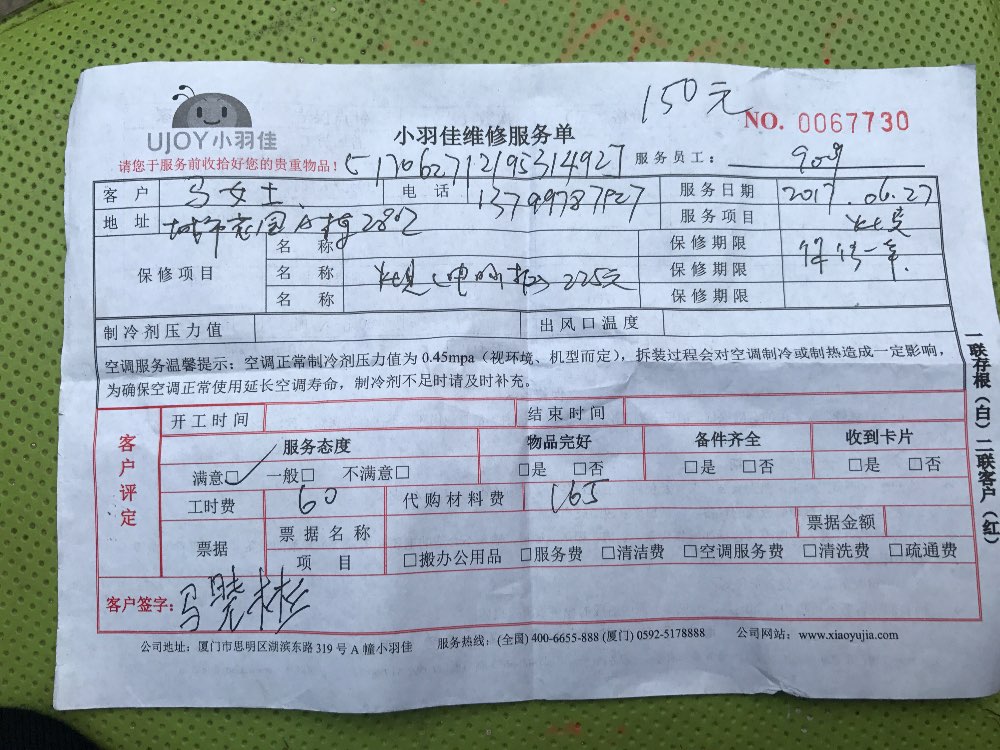 150元
NO. 0067730
UJOY小羽佳
小羽佳维修服务单
请您于服务前收拾好您的贵重物品！
517062712195314927
服务员工： 909
客户 马女士 电话 13799787927 服务日期 2017.06.27
地址 城市花园A幢28 服务项目
保修项目 名称 保修期限 保修一年
名称 (电脑板) 225元 保修期限
名称 保修期限
制冷剂压力值 出风口温度
空调服务温馨提示：空调正常制冷剂压力值为 0.45mpa（视环境、机型而定），拆装过程会对空调制冷或制热造成一定影响，
为确保空调正常使用延长空调寿命，制冷剂不足时请及时补充。
客户评定
开工时间 结束时间
服务态度 物品完好 备件齐全 收到卡片
满意□ 一般□ 不满意□ □是 □否 □是 □否 □是 □否
工时费 60 代购材料费 165
票据 票据名称 票据金额
项目 □搬办公用品 □服务费 □清洁费 □空调服务费 □清洗费 □疏通费
客户签字：马晓彬
公司地址：厦门市思明区湖滨东路 319 号 A 幢小羽佳 服务热线：(全国) 400-6655-888 (厦门) 0592-5178888 公司网站：www.xiaoyujia.com
一联存根（白）二联客户（红）